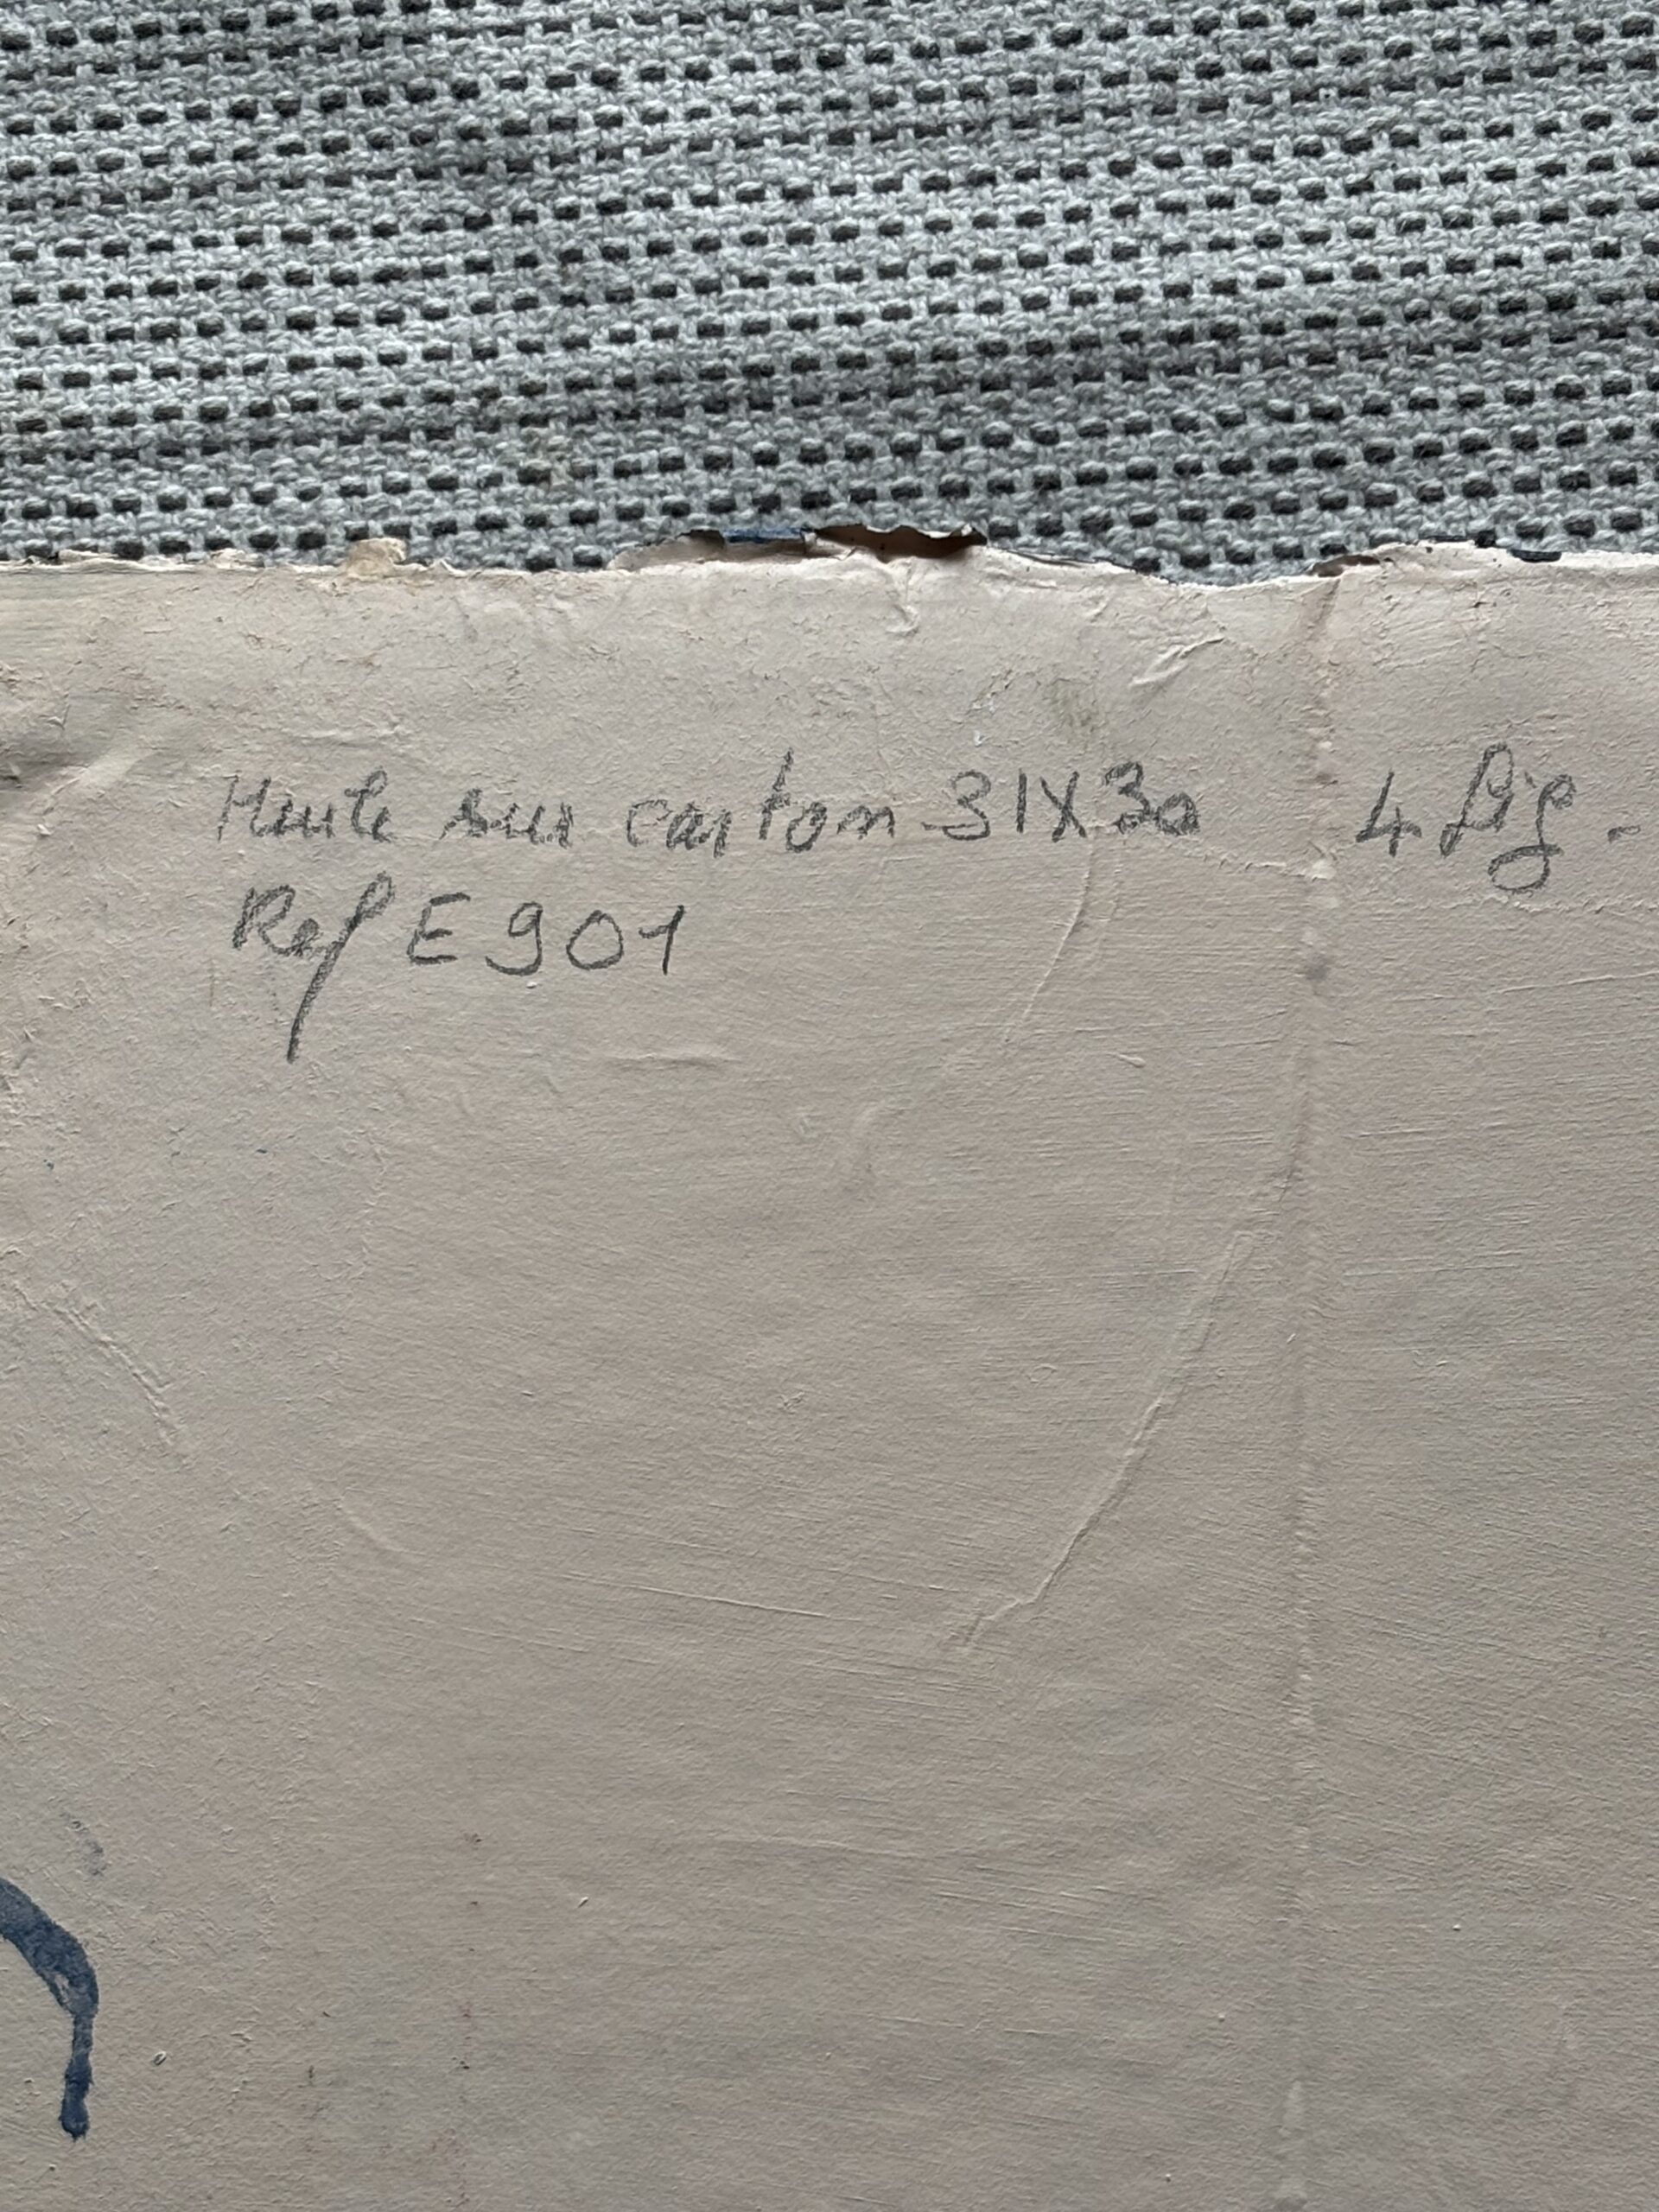 Huile sur carton 31X30 4 fig.
Ref E901